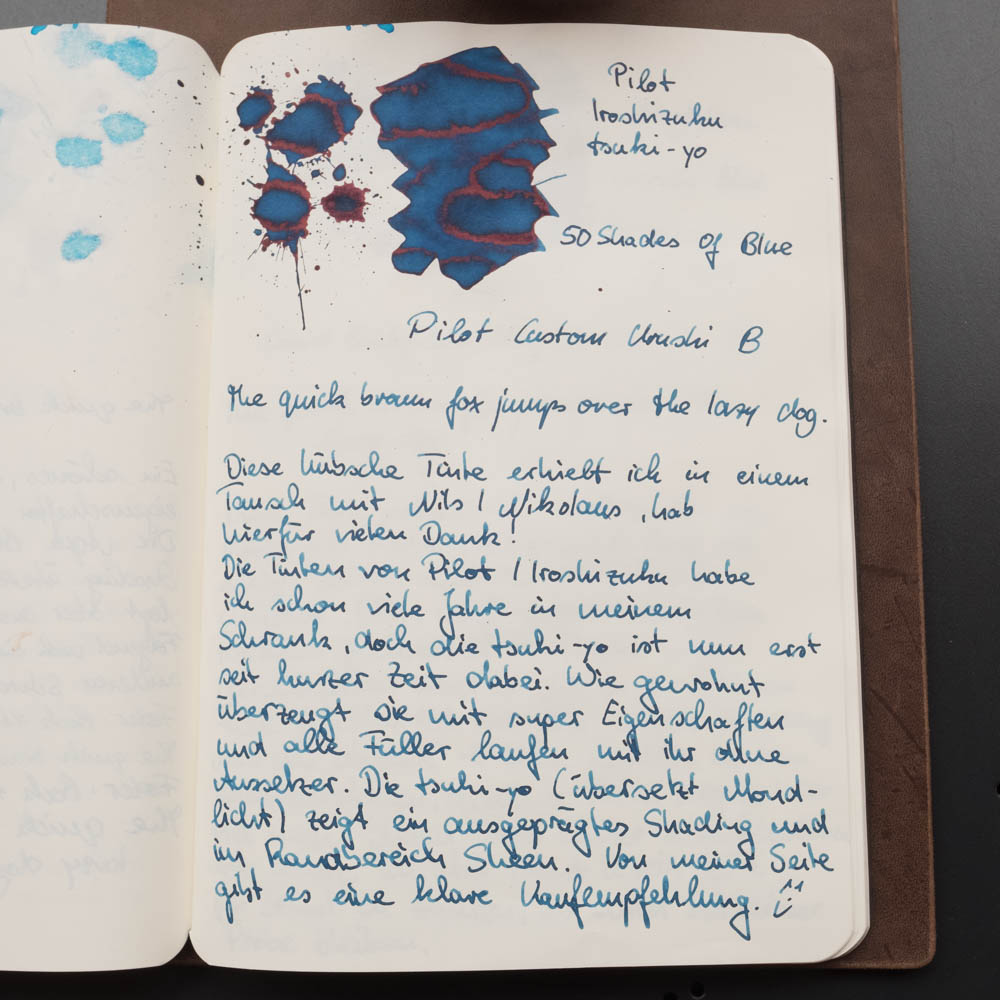 Pilot
Iroshizuku
tsuki-yo
50 Shades of Blue
Pilot Custom Urushi B
the quick brown fox jumps over the lazy dog.
Diese hübsche Tinte erhielt ich in einem
Tausch mit Nils / Nikolaus, hab
hierfür vielen Dank!
Die Tinten von Pilot / Iroshizuku habe
ich schon viele Jahre in meinem
Schrank, doch die tsuki-yo ist nun erst
seit kurzer Zeit dabei. Wie gewohnt
überzeugt sie mit super Eigenschaften
und alle Füller laufen mit ihr ohne
Aussetzer. Die tsuki-yo (übersetzt Mond-
licht) zeigt ein ausgeprägtes Shading und
im Randbereich Sheen. Von meiner Seite
gibt es eine klare Kaufempfehlung.